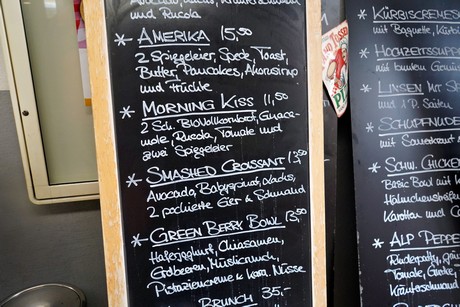 und Rucola
* AMERIKA 15,50
2 Spiegeleier, Speck, Toast,
Butter, Pancakes, Ahornsirup
und Früchte
* MORNING KISS 11,50
2 Sch. BioVollkornbrot, Guaca-
mole Rucola, Tomate und
zwei Spiegeleier
* SMASHED CROISSANT 13,50
Avocado, Babyspinat, Lachs,
2 pochierte Eier & Schmand
* GREEN BERRY BOWL 13,50
Haferjoghurt, Chiasamen,
Erdbeeren, Müslicrunch,
Pistaziencreme & kara. Nüsse
BRUNCH 35,-
* KÜRBISCREMESU
mit Baguette, Kürbi
* HOCHZEITSSUPP
mit buntem Gemüs
* LINSEN mit Sp
und 1P. Saiten
* SCHUPFNUDE
mit Sauerkraut
* SCHW. CHICKEN
Basic Bowl mit
Hähnchenbrust
Karotten und C
* ALP PEPPE
Rinderpatty,
Tomate, Gurke,
Kräuterschmand